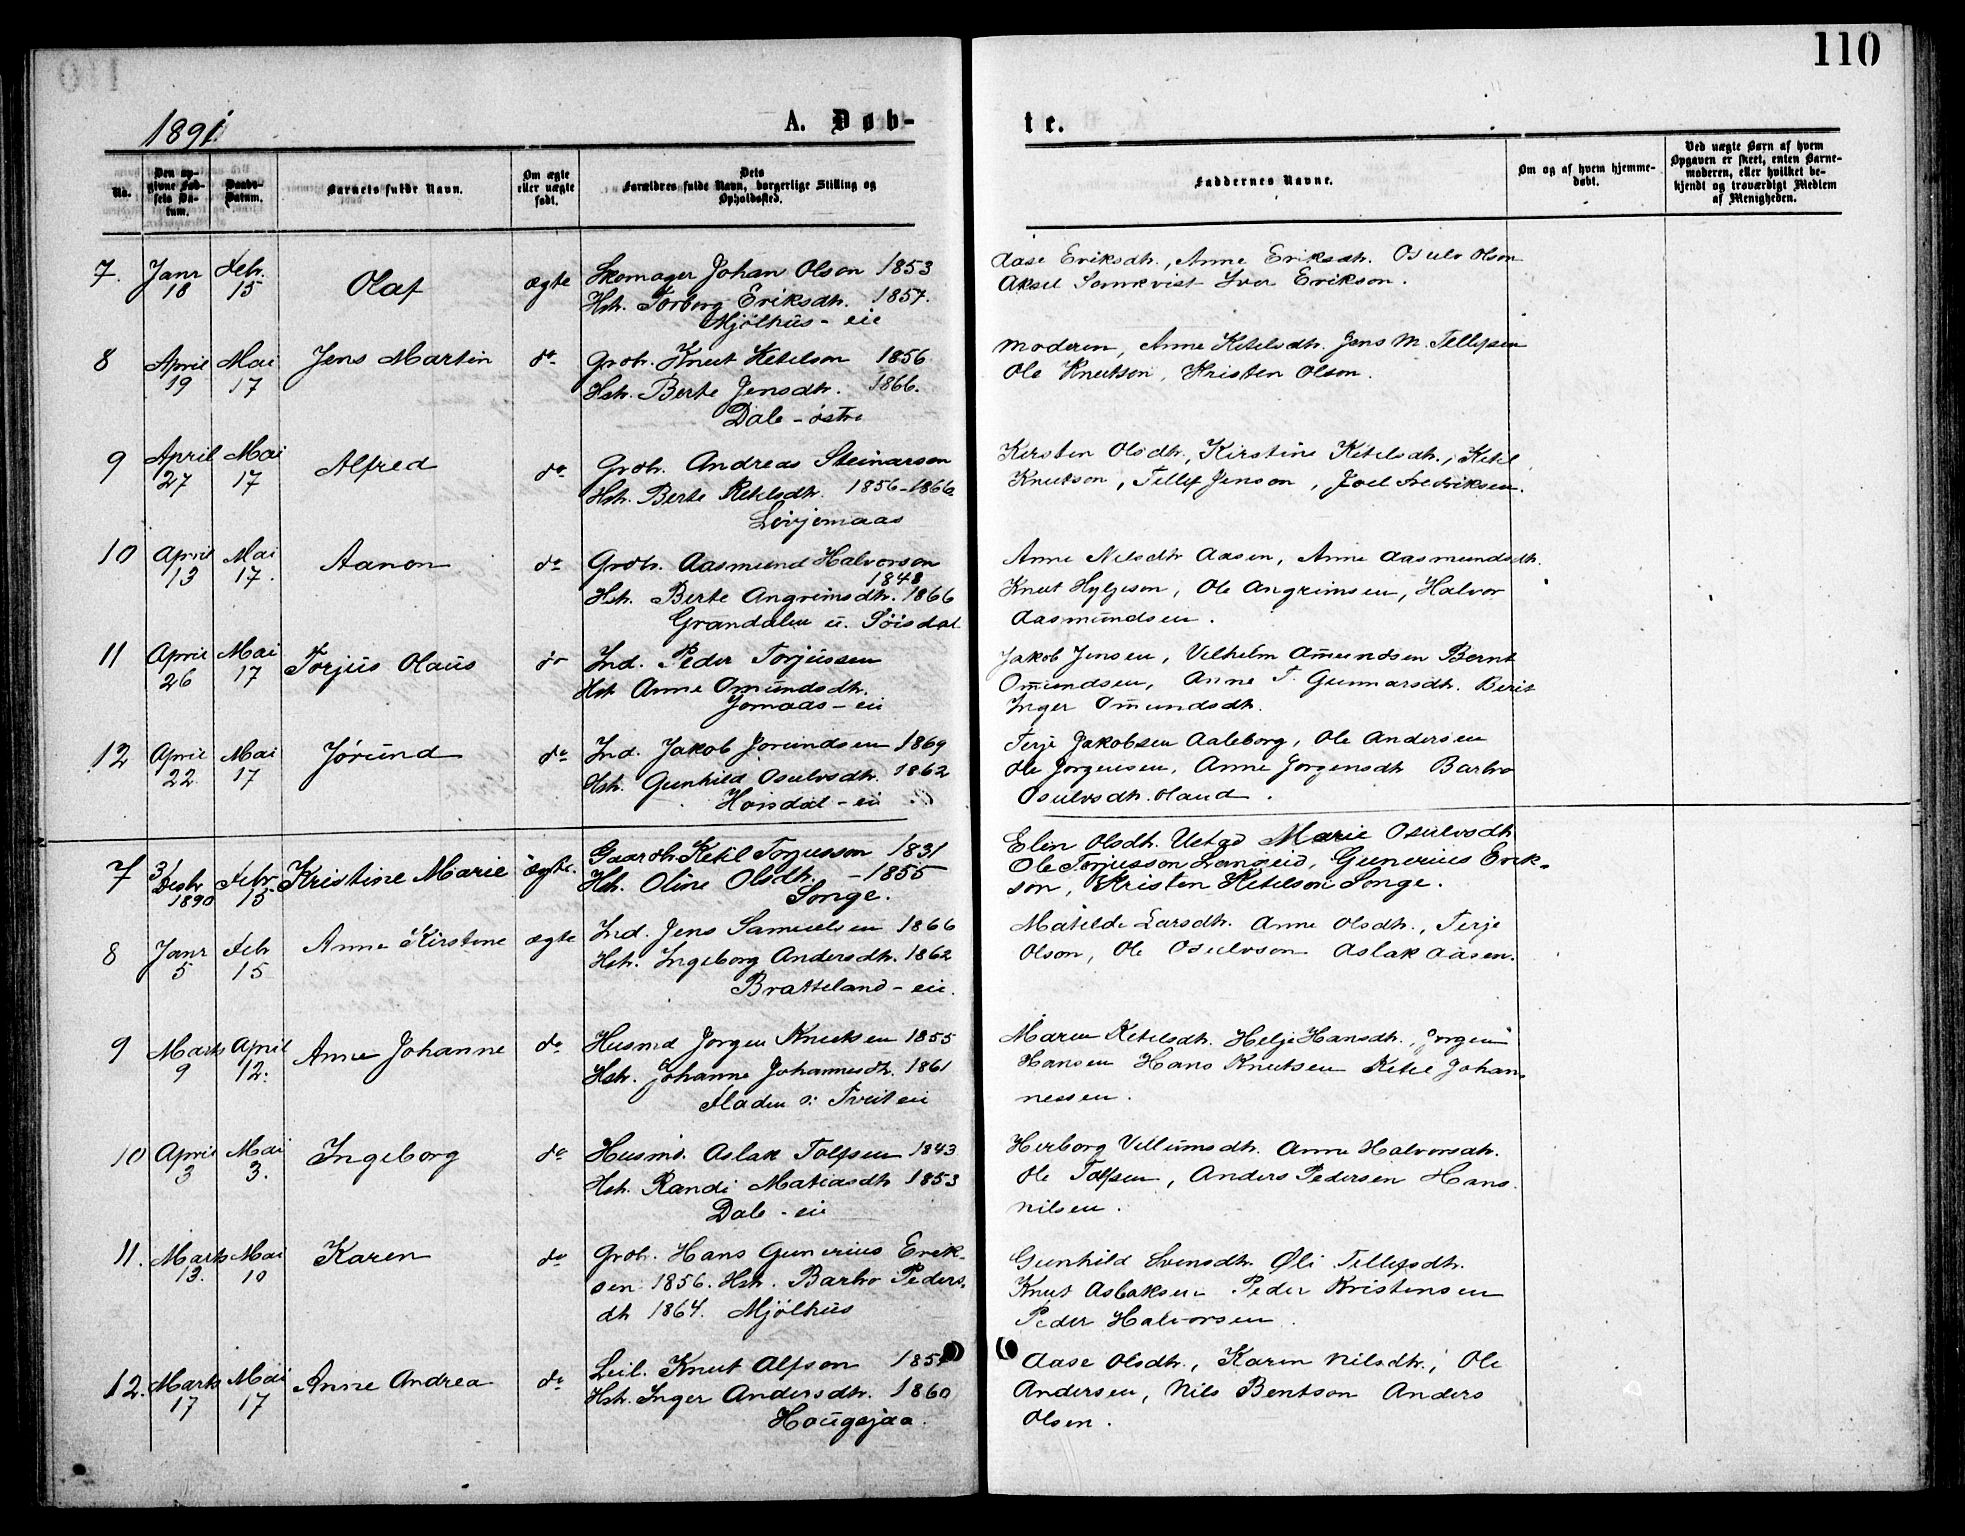 110
1891.
A. Døb-
te.
No.
Den op-
givne Fød-
sels Da-
tum.
Daabs-
Datum.
Barnets fulde Navn.
Om ægte
eller uægte
født.
Dets
Forældres fulde Navn, borgerlige Stilling og
Opholdssted.
Faddernes Navne.
Om og af hvem hjemme-
døbt.
Ved uægte Børn af hvem
Opgaven er skeet, enten Barne-
moderen, eller hvilket be-
kjendt og troværdigt Medlem
af Menigheden.
7. Janr 18 Febr. 15 Olaf ægte Skomager Johan Olson 1853
Hst. Torborg Eriksdtr. 1857.
Mjölhus - eie
Aase Eriksdtr., Anne Eriksdtr. Osulv Olson
Aksel Ivar Erikson.
8 April 19 Mai 17 Jens Martin do Grdbr. Knut Ketelson 1856
Hst. Berte Jensdtr. 1866.
Dale - östre
Moderen, Anne Ketelsdtr. Jens M. Tellefsen
Ole Knutson, Kristen Olson.
9 April 27 Mai 17 Alfred do Grdbr. Andreas Steinarson
Hst. Berte Ketelsdtr. 1856-1866
Kirsten Olsdtr., Kirstine Ketelsdtr., Ketel
Knutson, Tellef Jenson, Joel Fredriksen.
10 April 13 Mai 17. Aanon do Grdbr. Aasmund Halvorson
1848
Hst. Berte Angrimsdtr. 1866
Grandalen u.
Anne Nelsdtr Aasen, Anne Aasmundsdtr.
Knut Hylgeson, Ole Angrimsen, Halvor
Aasmundsen.
11 April 26 Mai 17 Torjus Olaus do Ind. Peder Torjussen
Hst Anne Omundsdtr.
Jomaas - eie
Jakob Jensen, Vilhelm Amundsen Bernt
Omundsen, Anne T. Gunnarsdtr. Berit
Inger Omundsdtr.
12 April 22. Mai 17 Jørund do Ind. Jakob Jorundsen 1869
Hst. Gunhild Osulvsdtr. 1862
Hoisdal - eie
Terje Jakobsen Aaleborg, Ole Andersen
Ole Jorgensen, Anne Jorgensdtr Barbro
Osulvsdtr. Oland.
7 31 Desbr 1890 Febr 15 Kristine Marie ægte. Gaardbr. Ketil Torjusson 1831
Hst. Oline Olsdtr. - 1855
Songe.
Elen Olsdtr. Ustad Marie Osulvsdtr
Ole Torjusson Langeid, Gunerius Erik-
son, Kristen Ketelson Songe.
8 Janr 5 Feb 15 Anne Kirstine ægte Ind. Jens Samuelsen 1866
Hst. Ingeborg Andersdtr. 1862
Bratteland - eie.
Matilde Larsdtr. Anne Olsdtr., Terje
Olson, Ole Osulvson Aslak Aasen.
9 Marts 9 April 12. Anne Johanne do Husmd Jorgen Knutsen 1855
Hst. Johanne Johannesdtr. 1861
Fladen u: Tveit eie
Maren Ketelsdtr. Helje Hansdtr., Jorgen
Hansen Hans Knutsen Ketel Johan-
nessen.
10 April 3 Mai 3. Ingeborg do Husmd. Aslak Tolfsen 1843
Hst. Randi Matiasdtr 1853
Dale - eie
Herborg Villumsdtr. Anne Halvorsdtr.
Ole Tolfsen, Anders Pedersen Hans
Nilsen.
11. Marts 13. Mai 10 Karen do Grdbr. Hans Gunerius Erik-
sen 1856. Hst. Barbro Peders-
dtr 1864. Mjölhus
Gunhild Svensdtr. Øli Tellefsdtr.
Knut Aslaksen Peder Kristensen
Peder Halvorsen.
12. Marts 17 Mai 17 Anne Andrea do Leil. Knut Alfson
Hst. Inger Andersdtr. 1860
Hougsjaa.
Aase Olsdtr., Karen Nilsdtr., Ole
Andersen, Nils Bentson Anders
Olsen.